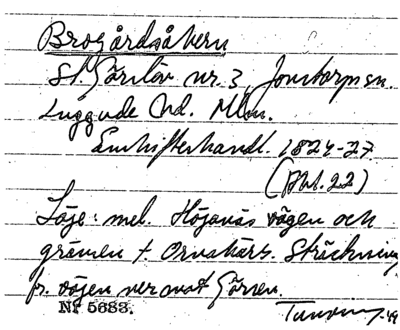 Brogårdsåkern
St. Görslöv nr. 3, Jonstorp sn.
Luggude hd. Mlm.
Enskifteshandl. 1824-27
(Akt. 22)
Läge: mel. Höganäs vägen och
gränsen t. Ornakärr. Sträckning
fr. vägen ner mot Görsen.
Nr 5683.